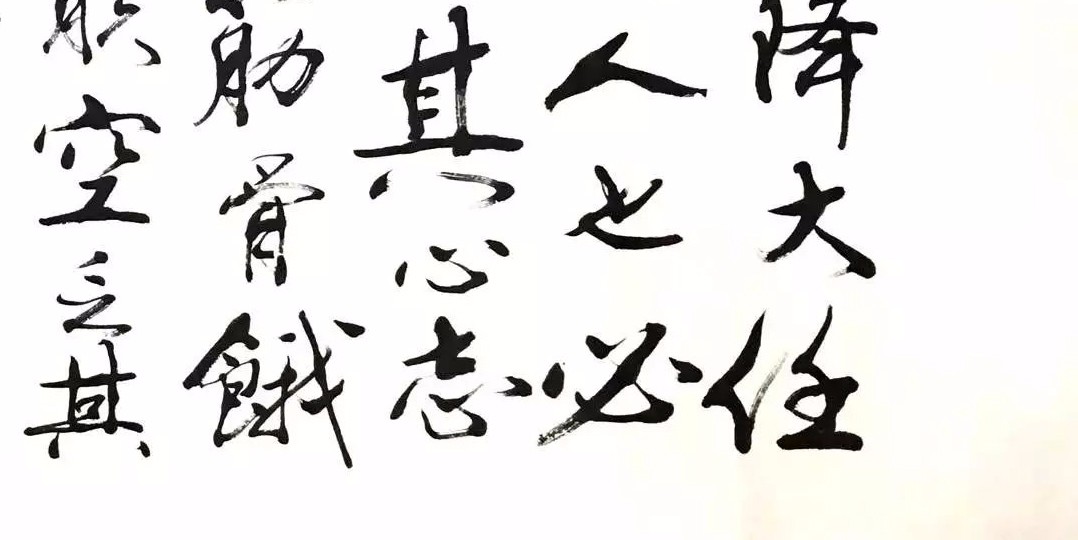 降大任
人也必
其心志
筋骨餓
空乏其